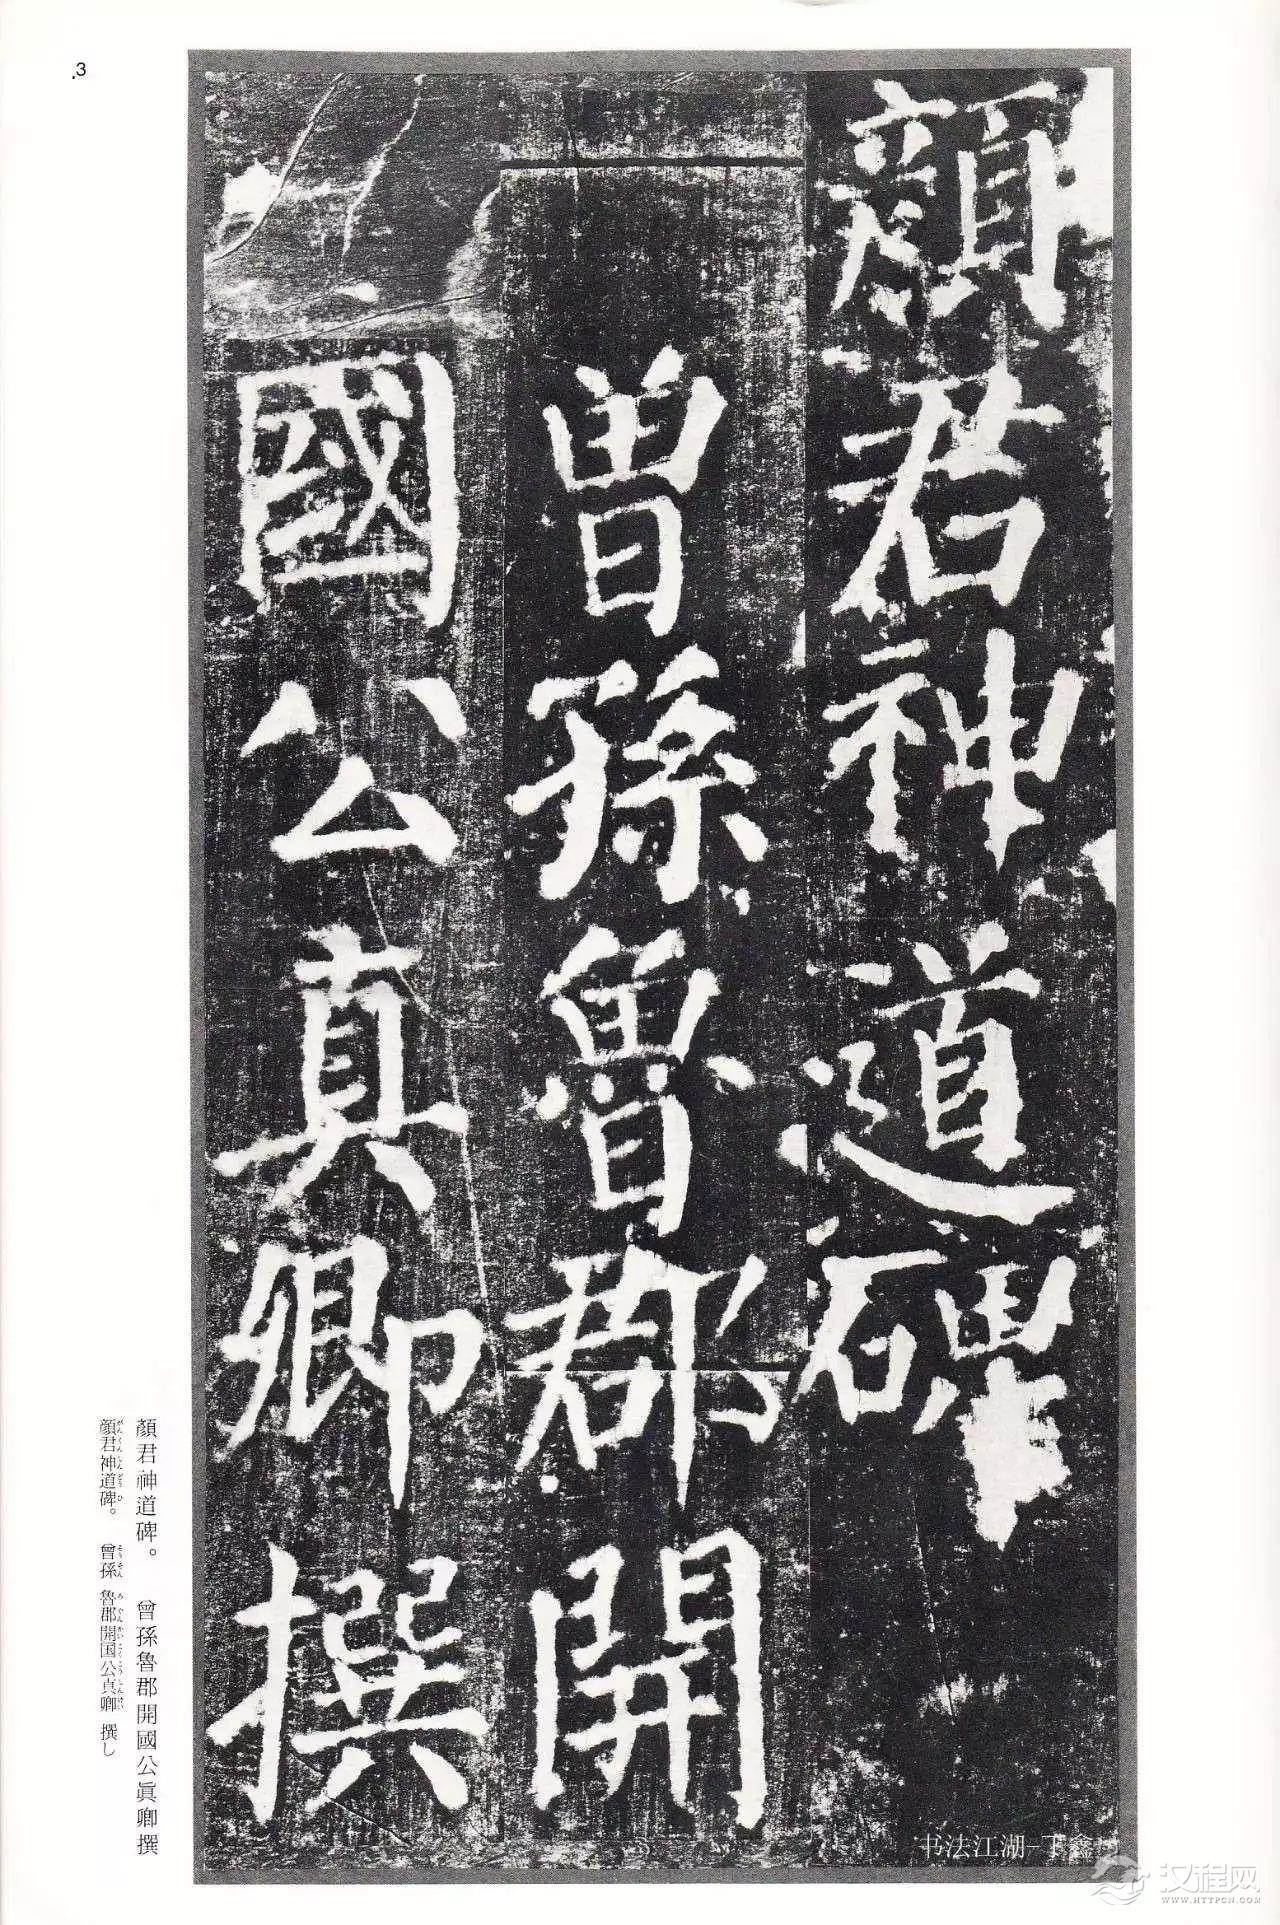 3
顏君神道碑
曾孫魯郡開
國公真卿撰
顏君神道碑。 曾孫魯郡開國公眞卿撰
顔君神道碑。 曾孫魯郡開国公真卿撰し
书法江湖-丁鑫
汉程网
WWW.HTTPCN.COM